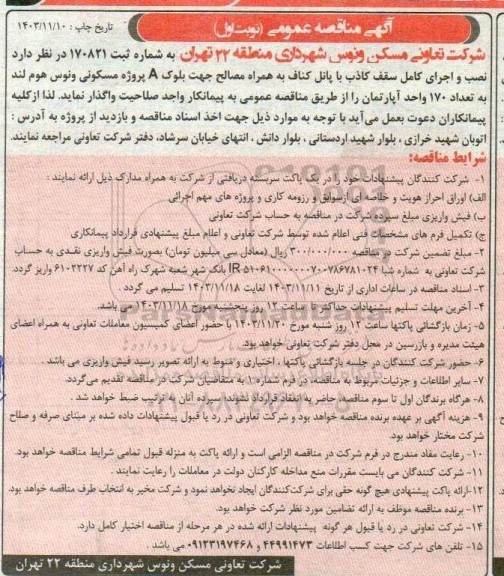 آگهی مناقصه عمومی (نوبت اول)
تاریخ چاپ : ۱۴۰۳/۱۱/۱۰
شرکت تعاونی مسکن ونوس شهرداری منطقه ۲۲ تهران به شماره ثبت ۱۷۰۸۲۱ در نظر دارد
نصب و اجرای کامل سقف کاذب با پانل کناف به همراه مصالح جهت بلوک A پروژه مسکونی ونوس هوم لند
به تعداد ۱۷۰ واحد آپارتمان را از طریق مناقصه عمومی به پیمانکار واجد صلاحیت واگذار نماید. لذا ازکلیه
پیمانکاران دعوت بعمل می‌آید با توجه به موارد ذیل جهت اخذ اسناد مناقصه و بازدید از پروژه به آدرس :
اتوبان شهید خرازی ، بلوار شهید اردستانی ، بلوار دانش ، انتهای خیابان سرشاد، دفتر شرکت تعاونی مراجعه نمایند.
شرایط مناقصه:
۱- شرکت کنندگان پیشنهادات خود را در یک پاکت سربسته دریافتی از شرکت به همراه مدارک ذیل ارائه نمایند :
الف) اوراق احراز هویت و خلاصه ای ازسوابق و رزومه کاری و پروژه های مهم اجرائی
ب) فیش واریزی مبلغ سپرده شرکت در مناقصه به حساب شرکت تعاونی
ج) تکمیل فرم های مشخصات فنی اعلام شده توسط شرکت تعاونی و اعلام مبلغ پیشنهادی قرارداد پیمانکاری
۲- مبلغ تضمین شرکت در مناقصه ۳۰۰/۰۰۰/۰۰۰ ریال (معادل سی میلیون تومان) بصورت فیش واریزی نقدی به حساب
شرکت تعاونی به شماره شبا IR ۵۱۰۶۱۰۰۰۰۰۰۰۷۰۰۷۸۶۷۸۱۰۲۴ بانک شهر شعبه شهرک راه آهن کد ۶۱۰۲۲۲۷ واریز گردد.
۳- اسناد مناقصه در ساعات اداری از تاریخ ۱۴۰۳/۱۱/۱۱ لغایت ۱۴۰۳/۱۱/۱۸ تسلیم می گردد .
۴- آخرین مهلت تسلیم پیشنهادات حداکثر تا ساعت ۱۲ روز پنجشنبه مورخ ۱۴۰۳/۱۱/۱۸ می باشد.
۵- زمان بازگشائی پاکتها ساعت ۱۲ روز شنبه مورخ ۱۴۰۳/۱۱/۲۰ با حضور اعضای کمیسیون معاملات تعاونی به همراه اعضای
هیئت مدیره و بازرسین در محل دفتر شرکت تعاونی خواهد بود.
۶- حضور شرکت کنندگان در جلسه بازگشائی پاکتها ، اختیاری و منوط به ارائه تصویر رسید فیش واریزی می باشد .
۷- سایر اطلاعات و جزئیات مربوط به مناقصه، در فرم شماره یک به متقاضیان شرکت در مناقصه تقدیم می‌گردد.
۸- هرگاه برندگان اول تا سوم مناقصه حاضر به انعقاد قرارداد نشوند، سپرده آنان به ترتیب ضبط خواهد شد .
۹- هزینه آگهی بر عهده برنده مناقصه خواهد بود و شرکت تعاونی در رد یا قبول پیشنهادات داده شده بر مبنای صرفه و صلاح
شرکت مختار خواهد بود.
۱۰- رعایت مفاد مندرج در فرم شرکت در مناقصه الزامی است و ارائه پاکت به منزله قبول تمامی شرایط مناقصه خواهد بود.
۱۱- شرکت کنندگان می بایست مقررات منع مداخله کارکنان دولت در معاملات را رعایت نمایند .
۱۲-ارائه پاکت پیشنهادی هیچ گونه حقی برای شرکت‌کنندگان ایجاد نخواهد نمود و شرکت مخیر به انتخاب طرف مناقصه خواهد بود.
۱۳- برنده مناقصه موظف به ارائه تضامین مورد نظر شرکت خواهد بود.
۱۴- شرکت تعاونی در رد یا قبول هر گونه پیشنهادات ارائه شده در هر مرحله از مناقصه اختیار کامل دارد.
۱۵- تلفن های شرکت جهت کسب اطلاعات ۴۴۹۹۱۴۷۳ و ۰۹۱۲۳۱۹۷۴۶۸ می باشد .
شرکت تعاونی مسکن ونوس شهرداری منطقه ۲۲ تهران